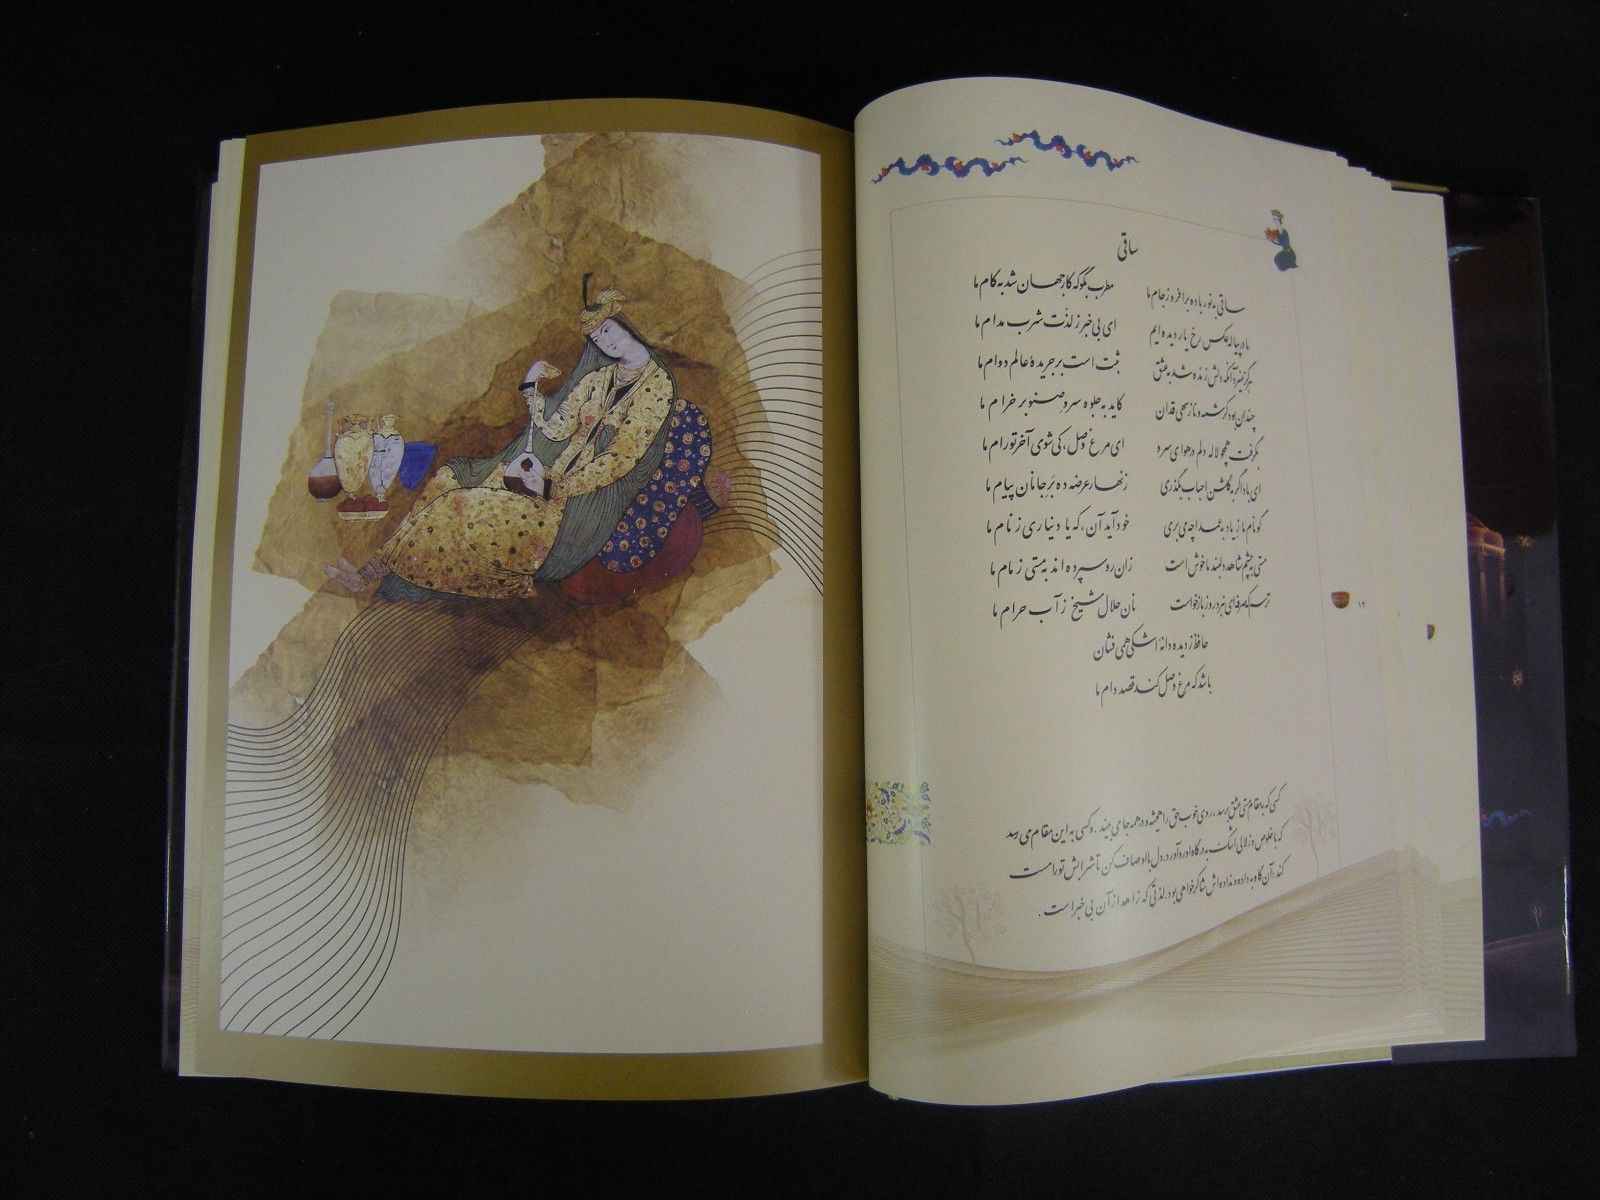 ساقی
ساقی به نور باده برافروز جام ما مطرب بگو که کار جهان شد به کام ما
ما در پیاله عکس رخ یار دیده ایم ای بی خبر ز لذّت شرب مدام ما
هرگز نمیرد آنکه دلش زنده شد به عشق ثبت است بر جریدهٔ عالم دوام ما
چندان بود کرشمه و ناز سهی قدان کاید به جلوه سرو صنوبر خرام ما
بگرفت همچو لاله دلم در هوای سرو ای مرغ وصل، کی شوی آخر تو رام ما
ای باد اگر به گلشن احباب بگذری زنهار عرضه ده بَرِ جانان پیام ما
گو نام ما ز یاد به عمدا چه می بری خود آید آن، که یاد نیاری ز نام ما
مستی به چشم شاهد دلبند ما خوش است زان رو سپرده اند به مستی زمام ما
ترسم که صرفه ای نبرد روز بازخواست نان حلال شیخ ز آب حرام ما
حافظ ز دیده دانهٔ اشکی همی فشان
باشد که مرغ وصل کند قصد دام ما
۱۲
کسی که به مقام مستی عشق برسد، روی خوب حق را همیشه و در همه جا می بیند. و کسی به این مقام می رسد
که با خلوص و زلالی اشک به درگاه او رو آورد. دل با او صاف کن تا سرانش تو را مست
کند، آن گاه به داده و نداده اش شاکر خواهی بود. لذتی که زاهد از آن بی خبر است.